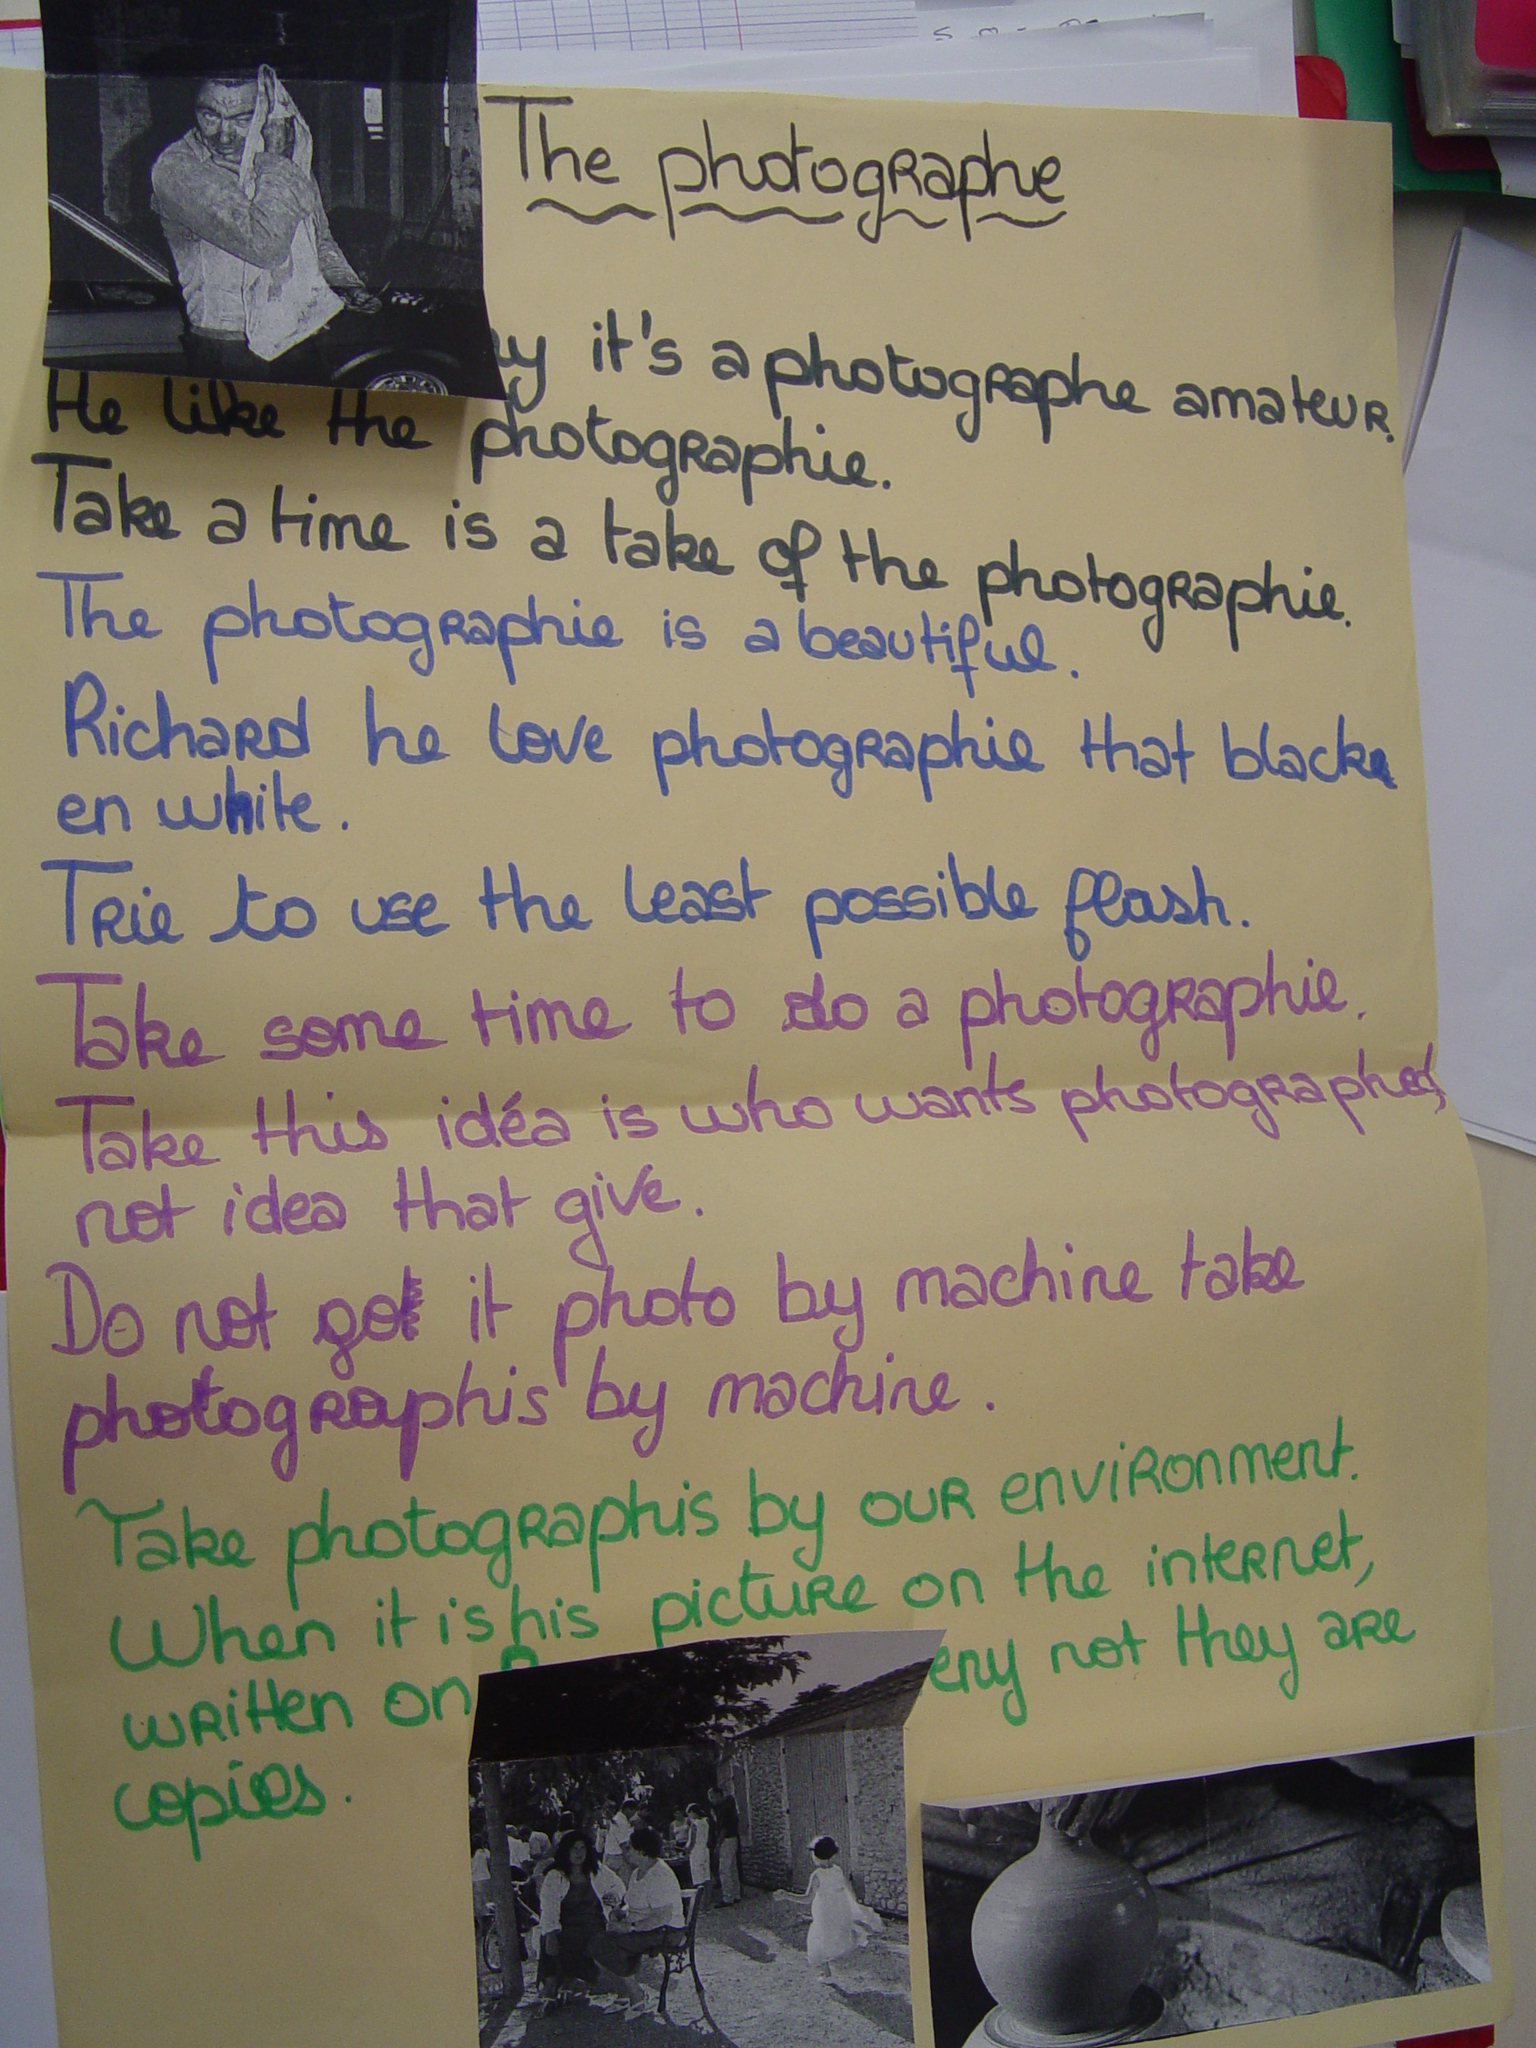 The photographie
it's a photographe amateur.
He like the photographie.
Take a time is a take of the photographie.
The photographie is a beautiful.
Richard he love photographie that black
en white.
Trie to use the least possible flash.
Take some time to do a photographie.
Take this idéa is who wants photographed,
not idea that give.
Do not got it photo by machine take
photographis by machine.
Take photographis by our environment.
When it is his picture on the internet,
written on not they are
copies.